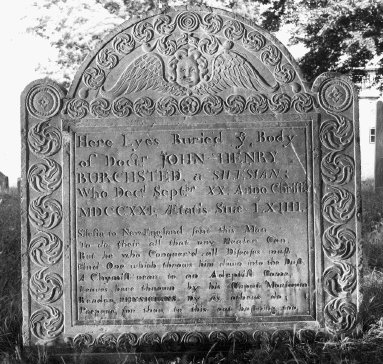 Here Lyes Buried yͤ Body
of Doctr JOHN HENRY
BURCHSTED, a SILESIAN:
Who Decd Septbr XX Anno Christi
MDCCXXI Ætatis Suæ LXIIII.
Silesia to New England sent this Man
To do their all that any Healer Can
But he who Conquerd all Diseases must
Find One which throws him down into the Dust
A Chymist near to an Adeptist Come
Leaves here thrown by his Caput Mortuum
Reader PHYSICIANS die as others do
Prepare, for thou to this art hastning too